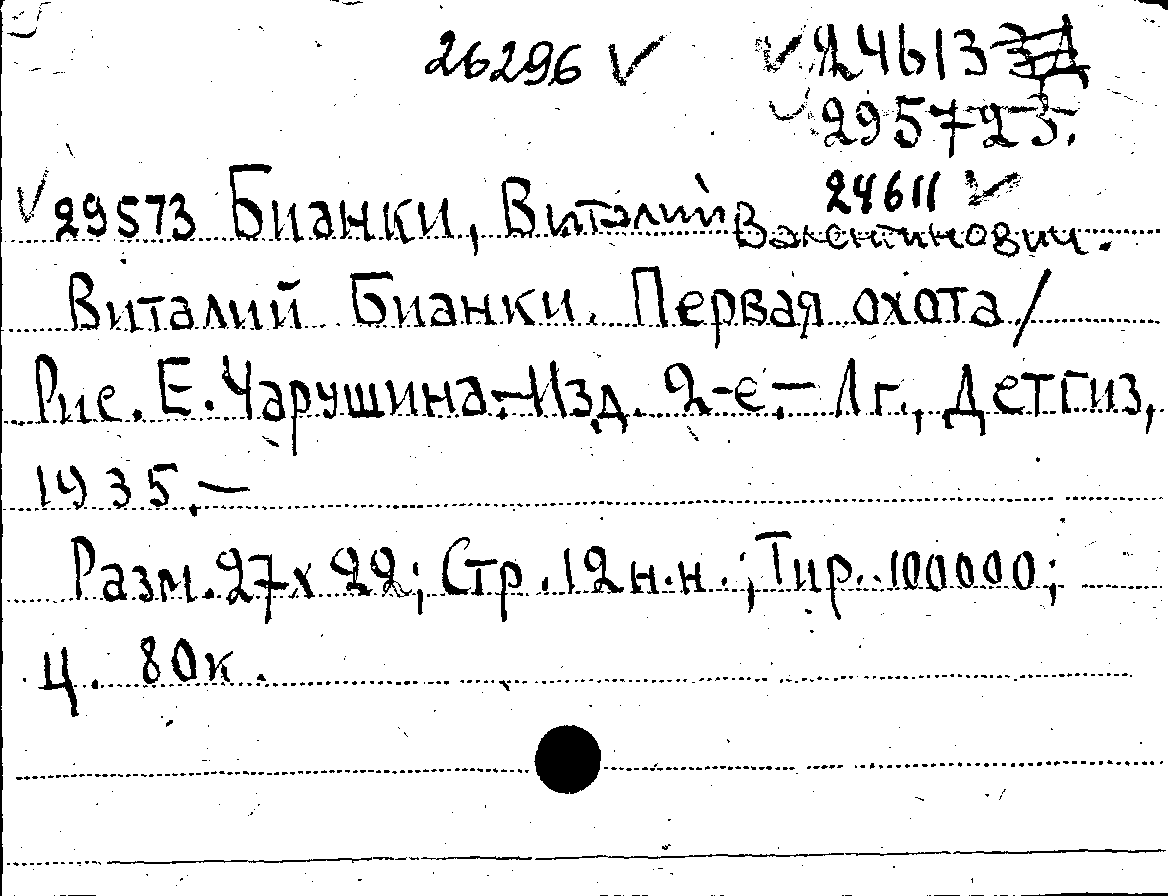 26296 ✓ ✓ 24613
✓ 29572 3.
24611 ✓
✓ 29573 Бианки, Виталий Валентинович.
Виталий Бианки. Первая охота /
Рис. Е. Чарушина. – Изд. 2-е. – Лг., Детгиз,
1935. –
Разм. 27 x 22; Стр. 12 н.н.; Тир. 100000;
Ц. 80к.